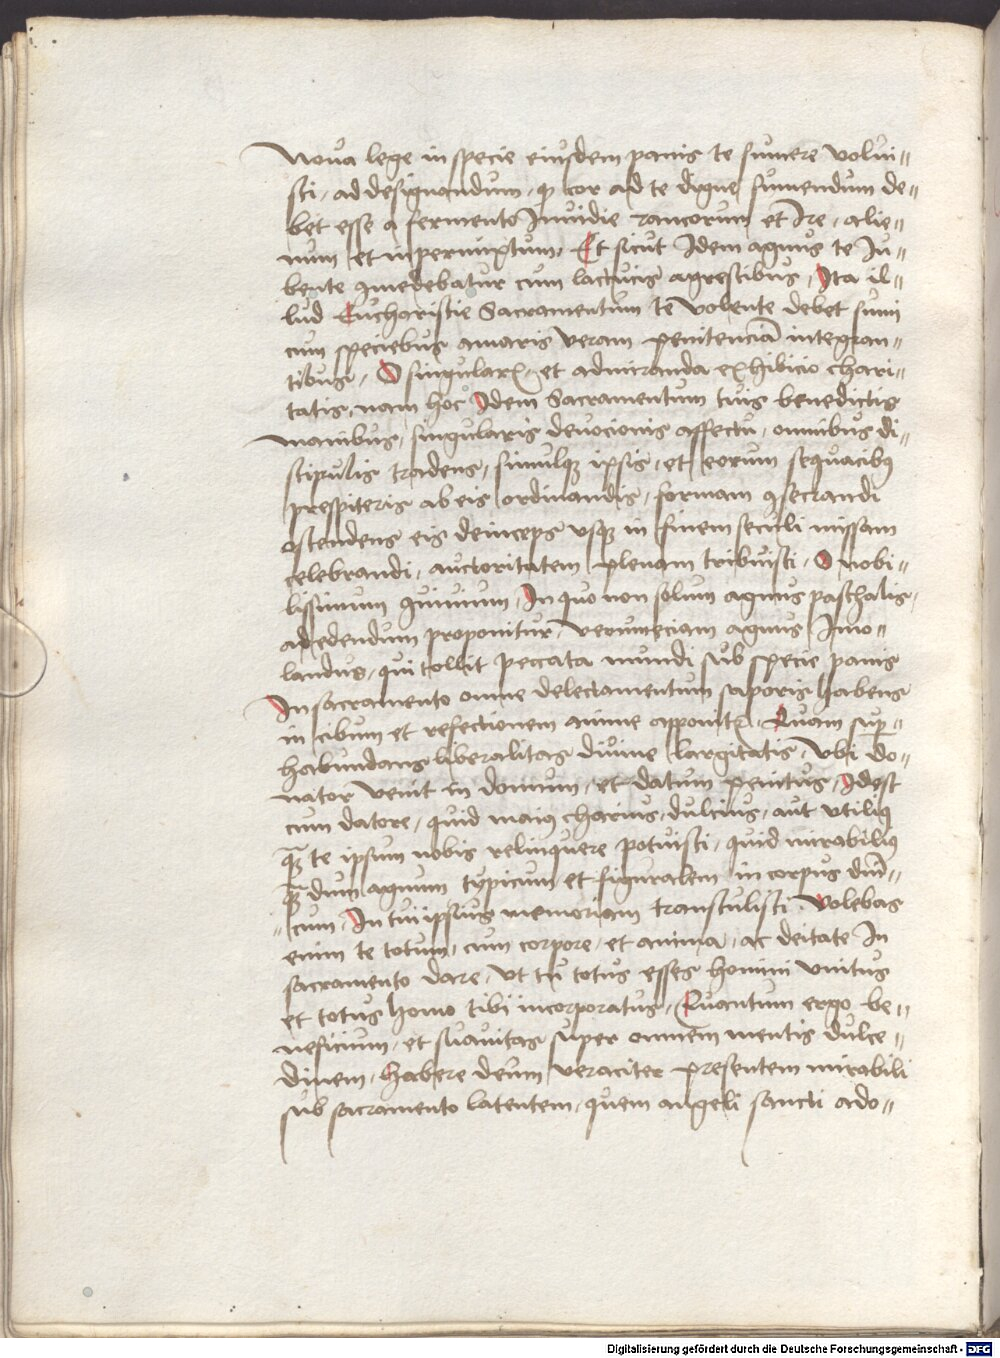 Noua lege in specie eiusdem panis te sumere volui=
sti, ad designandum, qꝫ cor ad te digne sumendum de=
bet esse a fermento Inuidie rancorum et Ire, alie=
num et inpermixtum, Et sicut Idem agnus te Iu=
bente ꝯmedebatur cum lactucis agrestibus, Ita il=
lud Eucharistie Sacramentum te volente debet sumi
cum speciebus amaris veram penitenciā integran=
tibus, O singularꝭ et admiranda exhibicio chari=
tatis, nam hoc Idem Sacramentum tuis benedictis
manibus, singularis deuocionis affectu, omnibus di=
scipulis tradens, simulqꝫ ipsis, et eorum sequacibꝯ
prespiteris ab eis ordinandis, formam ꝯsecrandi
ostendens eis deinceps vsqꝫ in finem seculi missam
celebrandi, auctoritatem plenam tribuisti, O nobi=
lissimum ꝯuiuium, In quo non solum agnus paschalis,
ad edendum proponitur, verumeciam agnus Imo=
landus, qui tollit peccata mundi sub specie panis
In sacramento omne delectamentum saporis habens
in cibum et refectionem anime apponitꝛ, Quam suꝑ=
habundans liberalitas diuine largitatis, vbi do=
nator venit in donum, et datum penitus, Idest
cum datore, quid maiꝯ charius, dulcius, aut vtiliꝯ
qꝫ̄ te ipsum nobis relinquere potuisti, quid mirabiliꝯ
qꝫ̄ dum agnum typicum et figuralem in corpus dm̄=
=cum, In tui ipsius memoriam transtulisti. Volebas
enim te totum, cum corpore, et anima, ac deitate In
sacramento dare, vt tu totus esses homini vnitus
et totus homo tibi incorporatus, Quantum ergo be=
neficium, et suauitas super omnem mentis dulce=
dinem, habere deum veraciter presentem mirabili
sub sacramento latentem, quem angeli sancti ado=
Digitalisierung gefördert durch die Deutsche Forschungsgemeinschaft - DFG